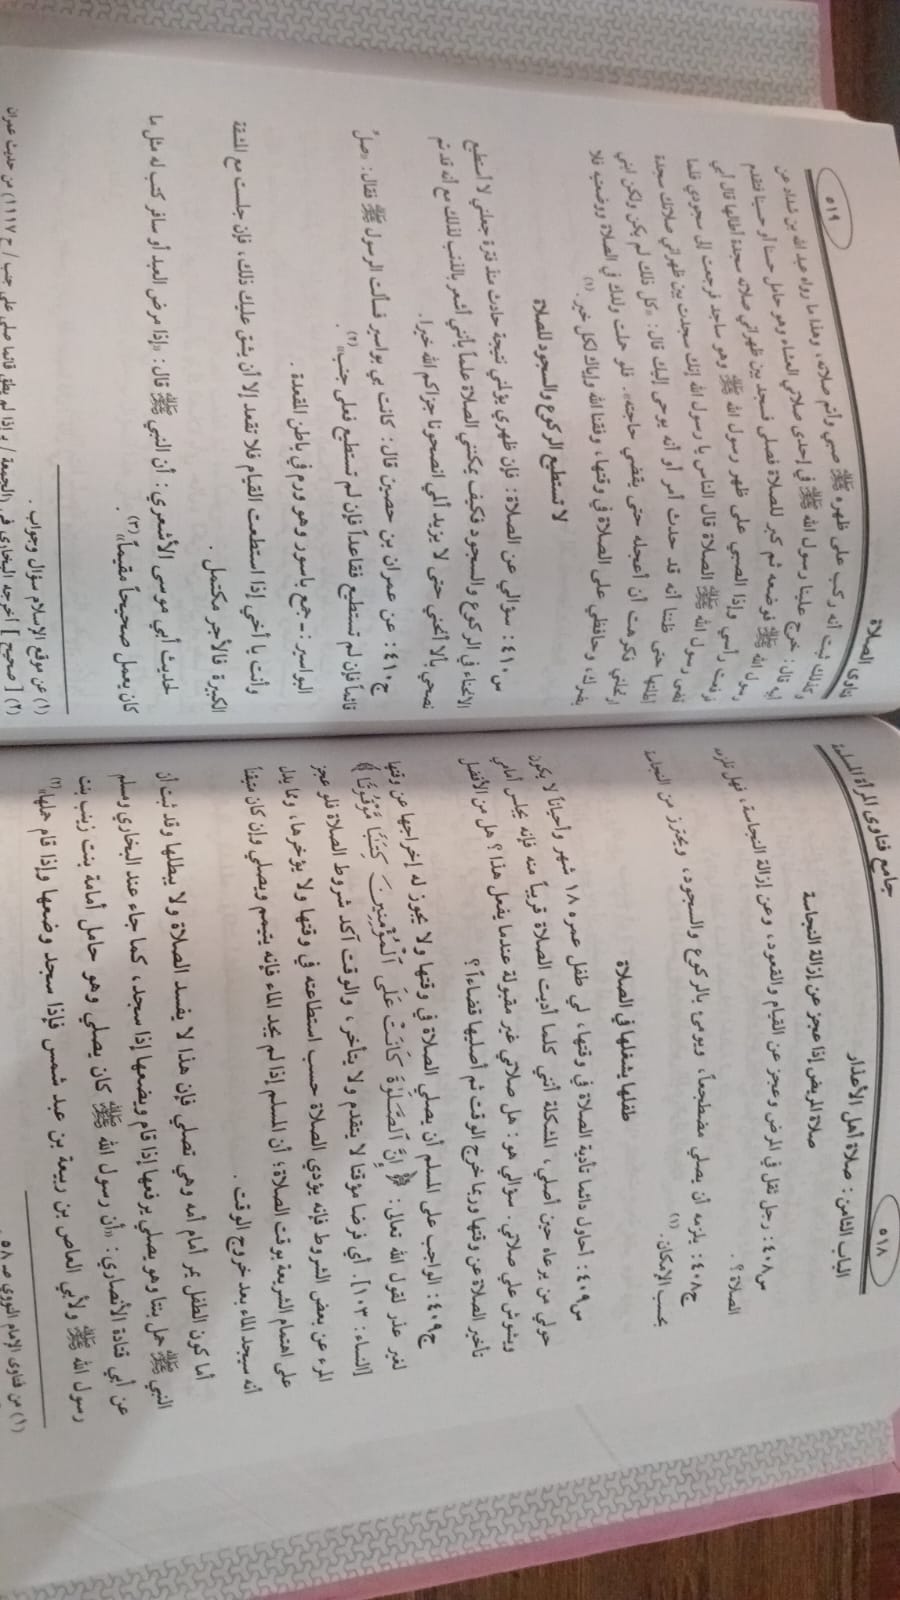 ٥١٨
جامع فتاوى المرأة المسلمة
الباب الثامن: صلاة أهل الأعذار
صلاة المريض إذا عجز عن إزالة النجاسة
س٤٠٨: رجل ثقل في المرض وعجز عن القيام والقعود، وعن إزالة النجاسة، فهل تلزمه
الصلاة؟.
ج٤٠٨: يلزمه أن يصلي مضطجعاً، ويومئ بالركوع والسجود، ويحترز من النجاسة
بحسب الإمكان. (١)
طفلها يشغلها في الصلاة
س٤٠٩: أحاول دائما تأدية الصلاة في وقتها، لي طفل عمره ١٨ شهر وأحياناً لا يكون
حولي من يرعاه حين أصلي، المشكلة أنني كلما أديت الصلاة قريباً منه فإنه يجلس أمامي
ويشوش علي صلاتي. سؤالي هو: هل صلاتي غير مقبولة عندما يفعل هذا؟ هل من الأفضل
تأخير الصلاة عن وقتها وربما خرج الوقت ثم أصليها قضاءاً؟
ج٤٠٩: الواجب على المسلم أن يصلي الصلاة في وقتها ولا يجوز له إخراجها عن وقتها
لغير عذر لقول الله تعالى: ﴿ إِنَّ الصَّلَوٰةَ كَانَتْ عَلَى الْمُؤْمِنِينَ كِتَٰبًا مَّوْقُوتًا ﴾
[النساء: ١٠٣]. أي فرضا مؤقتا لا يتقدم ولا يتأخر، والوقت آكد شروط الصلاة فلو عجز
المرء عن بعض الشروط فإنه يؤدي الصلاة حسب استطاعته في وقتها ولا يؤخرها، ومما يدل
على اهتمام الشريعة بوقت الصلاة؛ أن المسلم إذا لم يجد الماء فإنه يتيمم ويصلي وإن كان متيقناً
أنه سيجد الماء بعد خروج الوقت.
أما كون الطفل يمر أمام أمه وهي تصلي فإن هذا لا يفسد الصلاة ولا يبطلها وقد ثبت أن
النبي ﷺ حمل بنتا وهو يصلي يرفعها إذا قام ويضعها إذا سجد، كما جاء عند البخاري ومسلم
عن أبي قتادة الأنصاري: «أن رسول الله ﷺ كان يصلي وهو حامل أمامة بنت زينب بنت
رسول الله ﷺ ولأبي العاص بن ربيعة بن عبد شمس فإذا سجد وضعها وإذا قام حملها»(٢)
(١) من فتاوى الإمام النووي ص٥٨.
فتاوى الصلاة
٥١٩
وكذلك ثبت أنه ركب على ظهره ﷺ صبي وأتم صلاته، وهذا ما رواه عبد الله بن شداد عن
أبيه قال: خرج علينا رسول الله ﷺ في إحدى صلاتي العشاء وهو حامل حسنا أو حسينا فتقدم
رسول الله ﷺ فوضعه ثم كبر للصلاة فصلى فسجد بين ظهراني صلاته سجدة أطالها قال أبي
فرفعت رأسي وإذا الصبي على ظهر رسول الله ﷺ وهو ساجد فرجعت إلى سجودي فلما
قضى رسول الله ﷺ الصلاة قال الناس يا رسول الله إنك سجدت بين ظهراني صلاتك سجدة
أطلتها حتى ظننا أنه قد حدث أمر أو أنه يوحى إليك قال: «كل ذلك لم يكن ولكن ابني
ارتحلني فكرهت أن أعجله حتى يقضي حاجته». فلو حملت ولدك في الصلاة ووضعتيه فلا
يضرك، وحافظي على الصلاة في وقتها، وفقنا الله وإياك لكل خير. (١)
لا تستطيع الركوع والسجود للصلاة
س٤١٠: سؤالي عن الصلاة: فإن ظهري يؤلمني نتيجة حادث منذ فترة جعلني لا أستطيع
الانحناء في الركوع والسجود فكيف يمكنني الصلاة علماً بأنني أشعر بالذنب لذلك مع أنه قد تم
نصحي بألا أنحني حتى لا يزيد ألمي انصحونا جزاكم الله خيرا.
ج٤١٠: عن عمران بن حصين قال: كانت بي بواسير فسألت الرسول ﷺ فقال: «صلِّ
قائماً فإن لم تستطع فقاعداً فإن لم تستطع فعلى جنب»(٢).
البواسير: - جمع باسور وهو ورم في باطن المقعدة.
وأنت يا أخي إذا استطعت القيام فلا تقعد إلا أن يشق عليك ذلك، فإن جلست مع المشقة
الكبيرة فالأجر مكتمل.
لحديث أبي موسى الأشعري: أن النبي ﷺ قال: «إذا مرض العبد أو سافر كتب له مثل ما
كان يعمل صحيحاً مقيماً»(٣).
(١) عن موقع الإسلام سؤال وجواب.
(٢) [صحيح] أخرجه البخاري في (الجمعة / وإذا لم يطق قائما صلى على جنب / ح ١١١٧) من حديث عمران